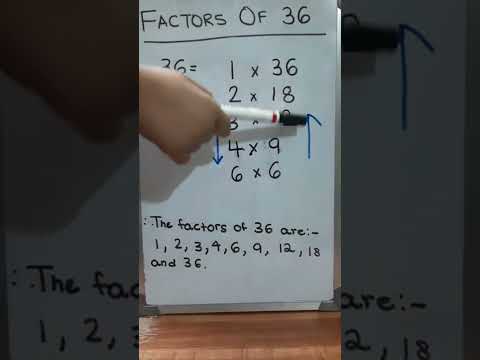 FACTORS OF 36
36 = 1 × 36
2 × 18
3 ×
4 × 9
6 × 6
∴ The factors of 36 are:-
1, 2, 3, 4, 6, 9, 12, 18
and 36.